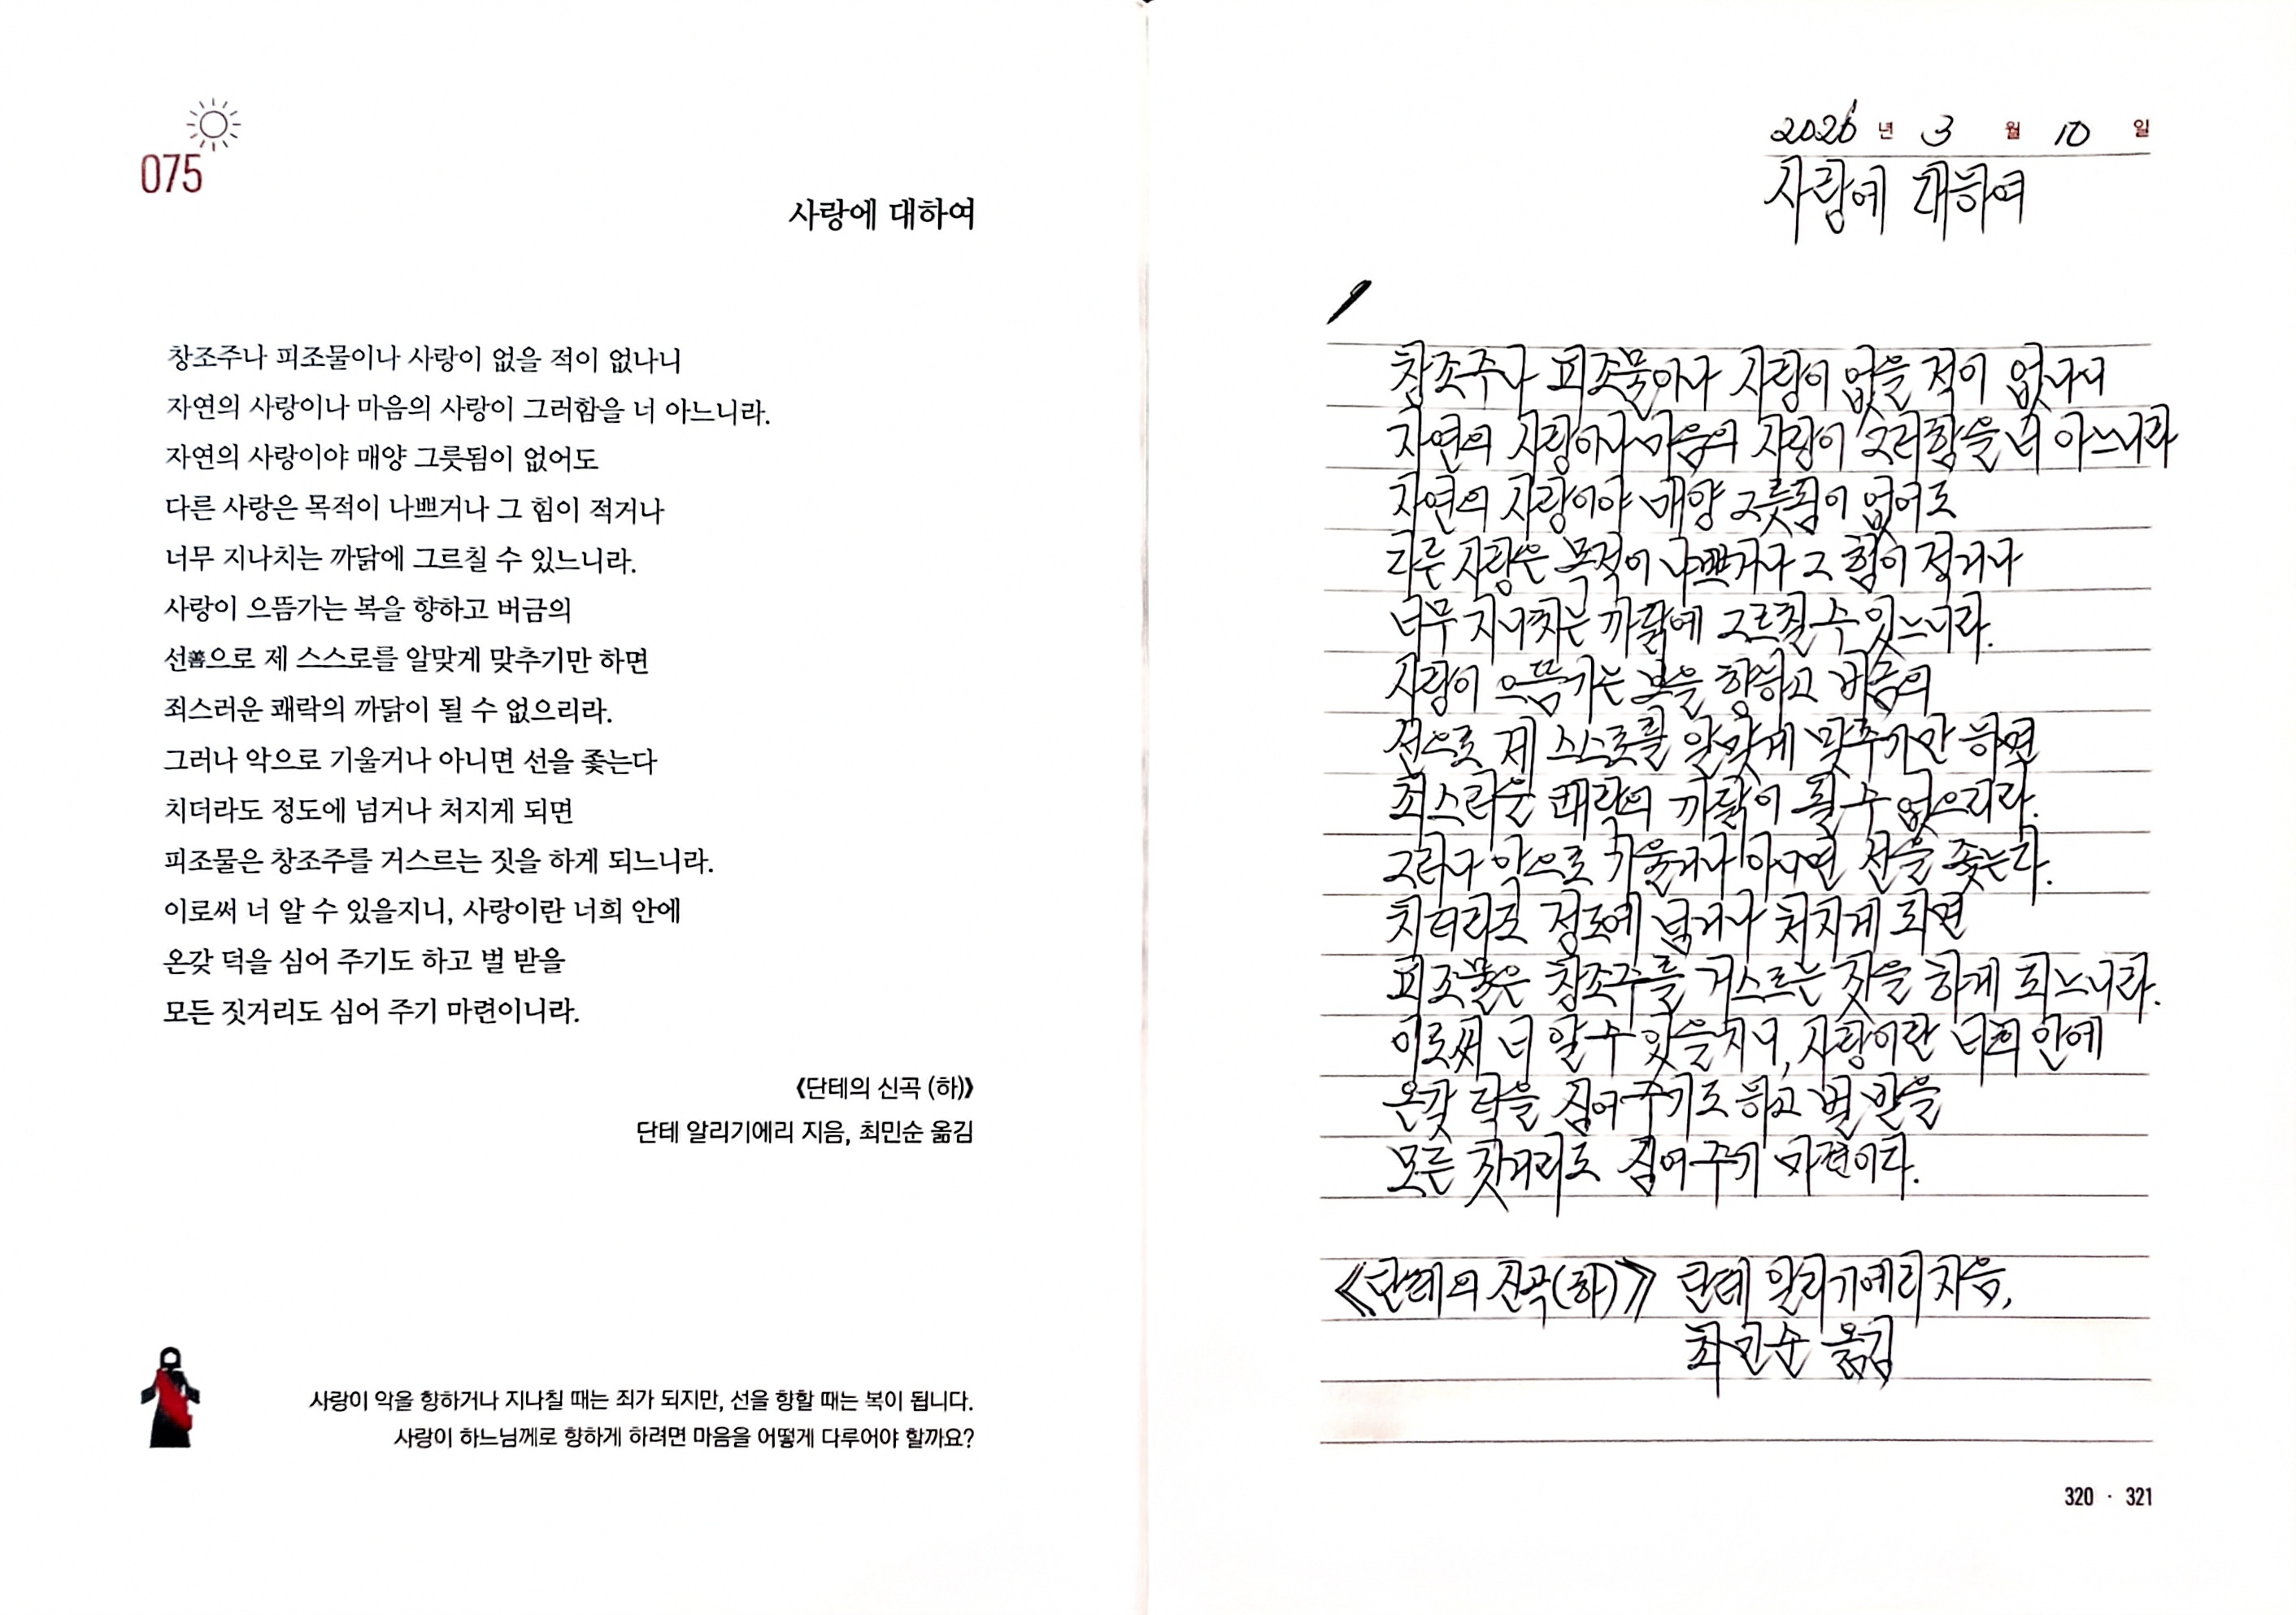 075
사랑에 대하여
창조주나 피조물이나 사랑이 없을 적이 없나니
자연의 사랑이나 마음의 사랑이 그러함을 너 아느니라.
자연의 사랑이야 매양 그릇됨이 없어도
다른 사랑은 목적이 나쁘거나 그 힘이 적거나
너무 지나치는 까닭에 그르칠 수 있느니라.
사랑이 으뜸가는 복을 향하고 버금의
선善으로 제 스스로를 알맞게 맞추기만 하면
죄스러운 쾌락의 까닭이 될 수 없으리라.
그러나 악으로 기울거나 아니면 선을 좇는다
치더라도 정도에 넘거나 처지게 되면
피조물은 창조주를 거스르는 짓을 하게 되느니라.
이로써 너 알 수 있을지니, 사랑이란 너희 안에
온갖 덕을 심어 주기도 하고 벌 받을
모든 짓거리도 심어 주기 마련이니라.
《단테의 신곡 (하)》
단테 알리기에리 지음, 최민순 옮김
사랑이 악을 향하거나 지나칠 때는 죄가 되지만, 선을 향할 때는 복이 됩니다.
사랑이 하느님께로 향하게 하려면 마음을 어떻게 다루어야 할까요?
2026 년 3 월 10 일
사랑에 대하여
창조주나 피조물이나 사랑이 없을 적이 없나니
자연의 사랑이나 마음의 사랑이 그러함을 너 아느니라
자연의 사랑이야 매양 그릇됨이 없어도
다른 사랑은 목적이 나쁘거나 그 힘이 적거나
너무 지나치는 까닭에 그르칠 수 있느니라.
사랑이 으뜸가는 복을 향하고 버금의
선으로 제 스스로를 알맞게 맞추기만 하면
죄스러운 쾌락의 까닭이 될 수 없으리라.
그러나 악으로 기울거나 아니면 선을 좇는다.
치더라도 정도에 넘거나 처지게 되면
피조물은 창조주를 거스르는 짓을 하게 되느니라.
이로써 너 알 수 있을지니, 사랑이란 너희 안에
온갖 덕을 심어 주기도 하고 벌 받을
모든 짓거리도 심어 주기 마련이다.
《단테의 신곡(하)》 단테 알리기에리 지음,
최민순 옮김
320 · 321